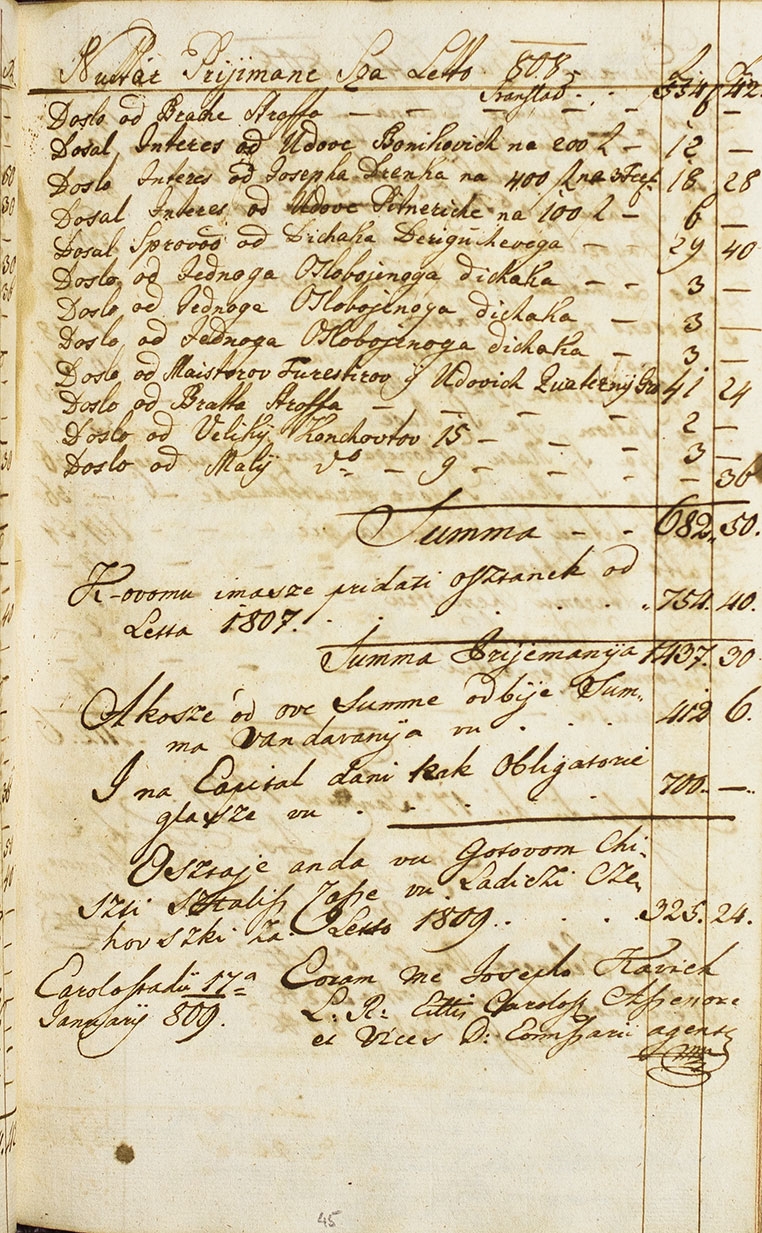 Nuttár Prijimane Sza Letto 808.
Translat - 554 42.
Doslo od Brache Stroffa - - - - - 6 -
Dosal Interes od Udove Bonihovich na 200 f - 12 -
Doslo Interes od Josepha Drenka na 400 f na 18 28
Dosal Interes od Udove Pitneriche na 100 f - 6 -
Dosal Sprovod od Dichaka Deriguchevoga - - 29 40
Doslo od Jednoga Oslobojenoga dichaka - - 3 -
Doslo od Jednoga Oslobojenoga dichaka - 3 -
Doslo od Jednoga Oslobojenoga dichaka - 3 -
Doslo od Maistorov Furestirov ÿ Udovich Quaternÿ 41 24
Doslo od Bratta Stroffa - - - - - 2 -
Doslo od Velikÿ Konchovtov 15 - - - 3 -
Doslo od Malÿ do - 9 - - - - - 36
Summa - - 682. 50.
K-ovomu imasze pridati osztanek od
Letta 1807. . . . . . 754. 40.
Summa Prijemanija 1437. 30
Akosze od ove Summe odbije Sum-
ma Vandavanÿa vu . . . 412 6.
I na Capital dani kak Obligatorie
glasze vu . . . . 700. -
Osztaje anda vu Gotovom Chi-
szti Sztaliss Casse vu Ladiczi Cze-
hovszki za Letto 1809. . . . . 325. 24.
Carolostadii 17a
Januarÿ 809.
Coram me Josepho Kavich
L: R: Cittis Carolos Assessore
et Vices D: Comissarii agente
mp
45